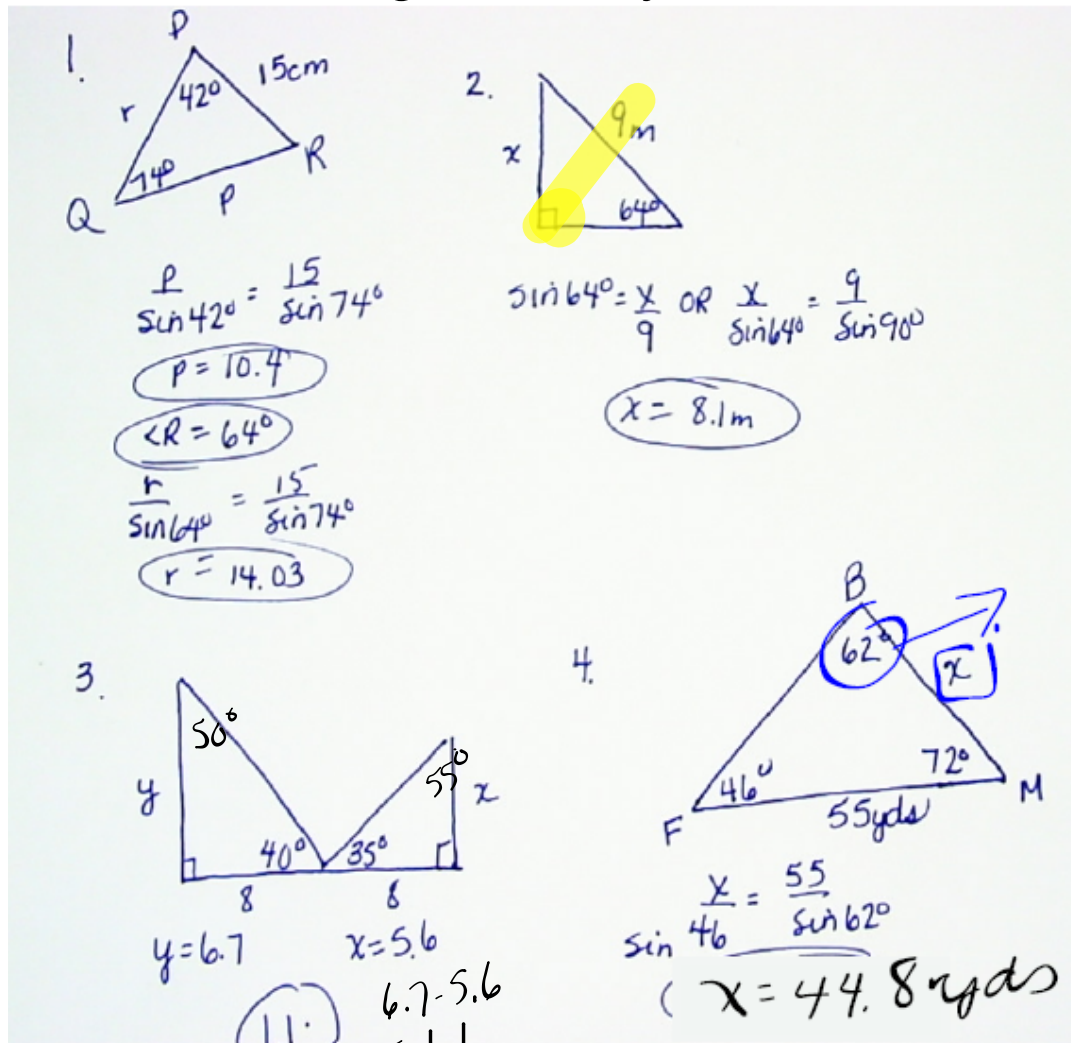 1.
P
42°
15cm
r
74°
R
Q
P
P/sin42° = 15/sin74°
P = 10.4
<R = 64°
r/sin64° = 15/sin74°
r = 14.03
2.
9m
x
64°
sin64° = x/9 OR x/sin64° = 9/sin90°
x = 8.1m
3.
50°
55°
y
x
40°
35°
8
8
y=6.7
x=5.6
6.7-5.6
4.
B
62°
x
46°
72°
F
55yds
M
x/sin 46 = 55/sin62°
x = 44.8 yds